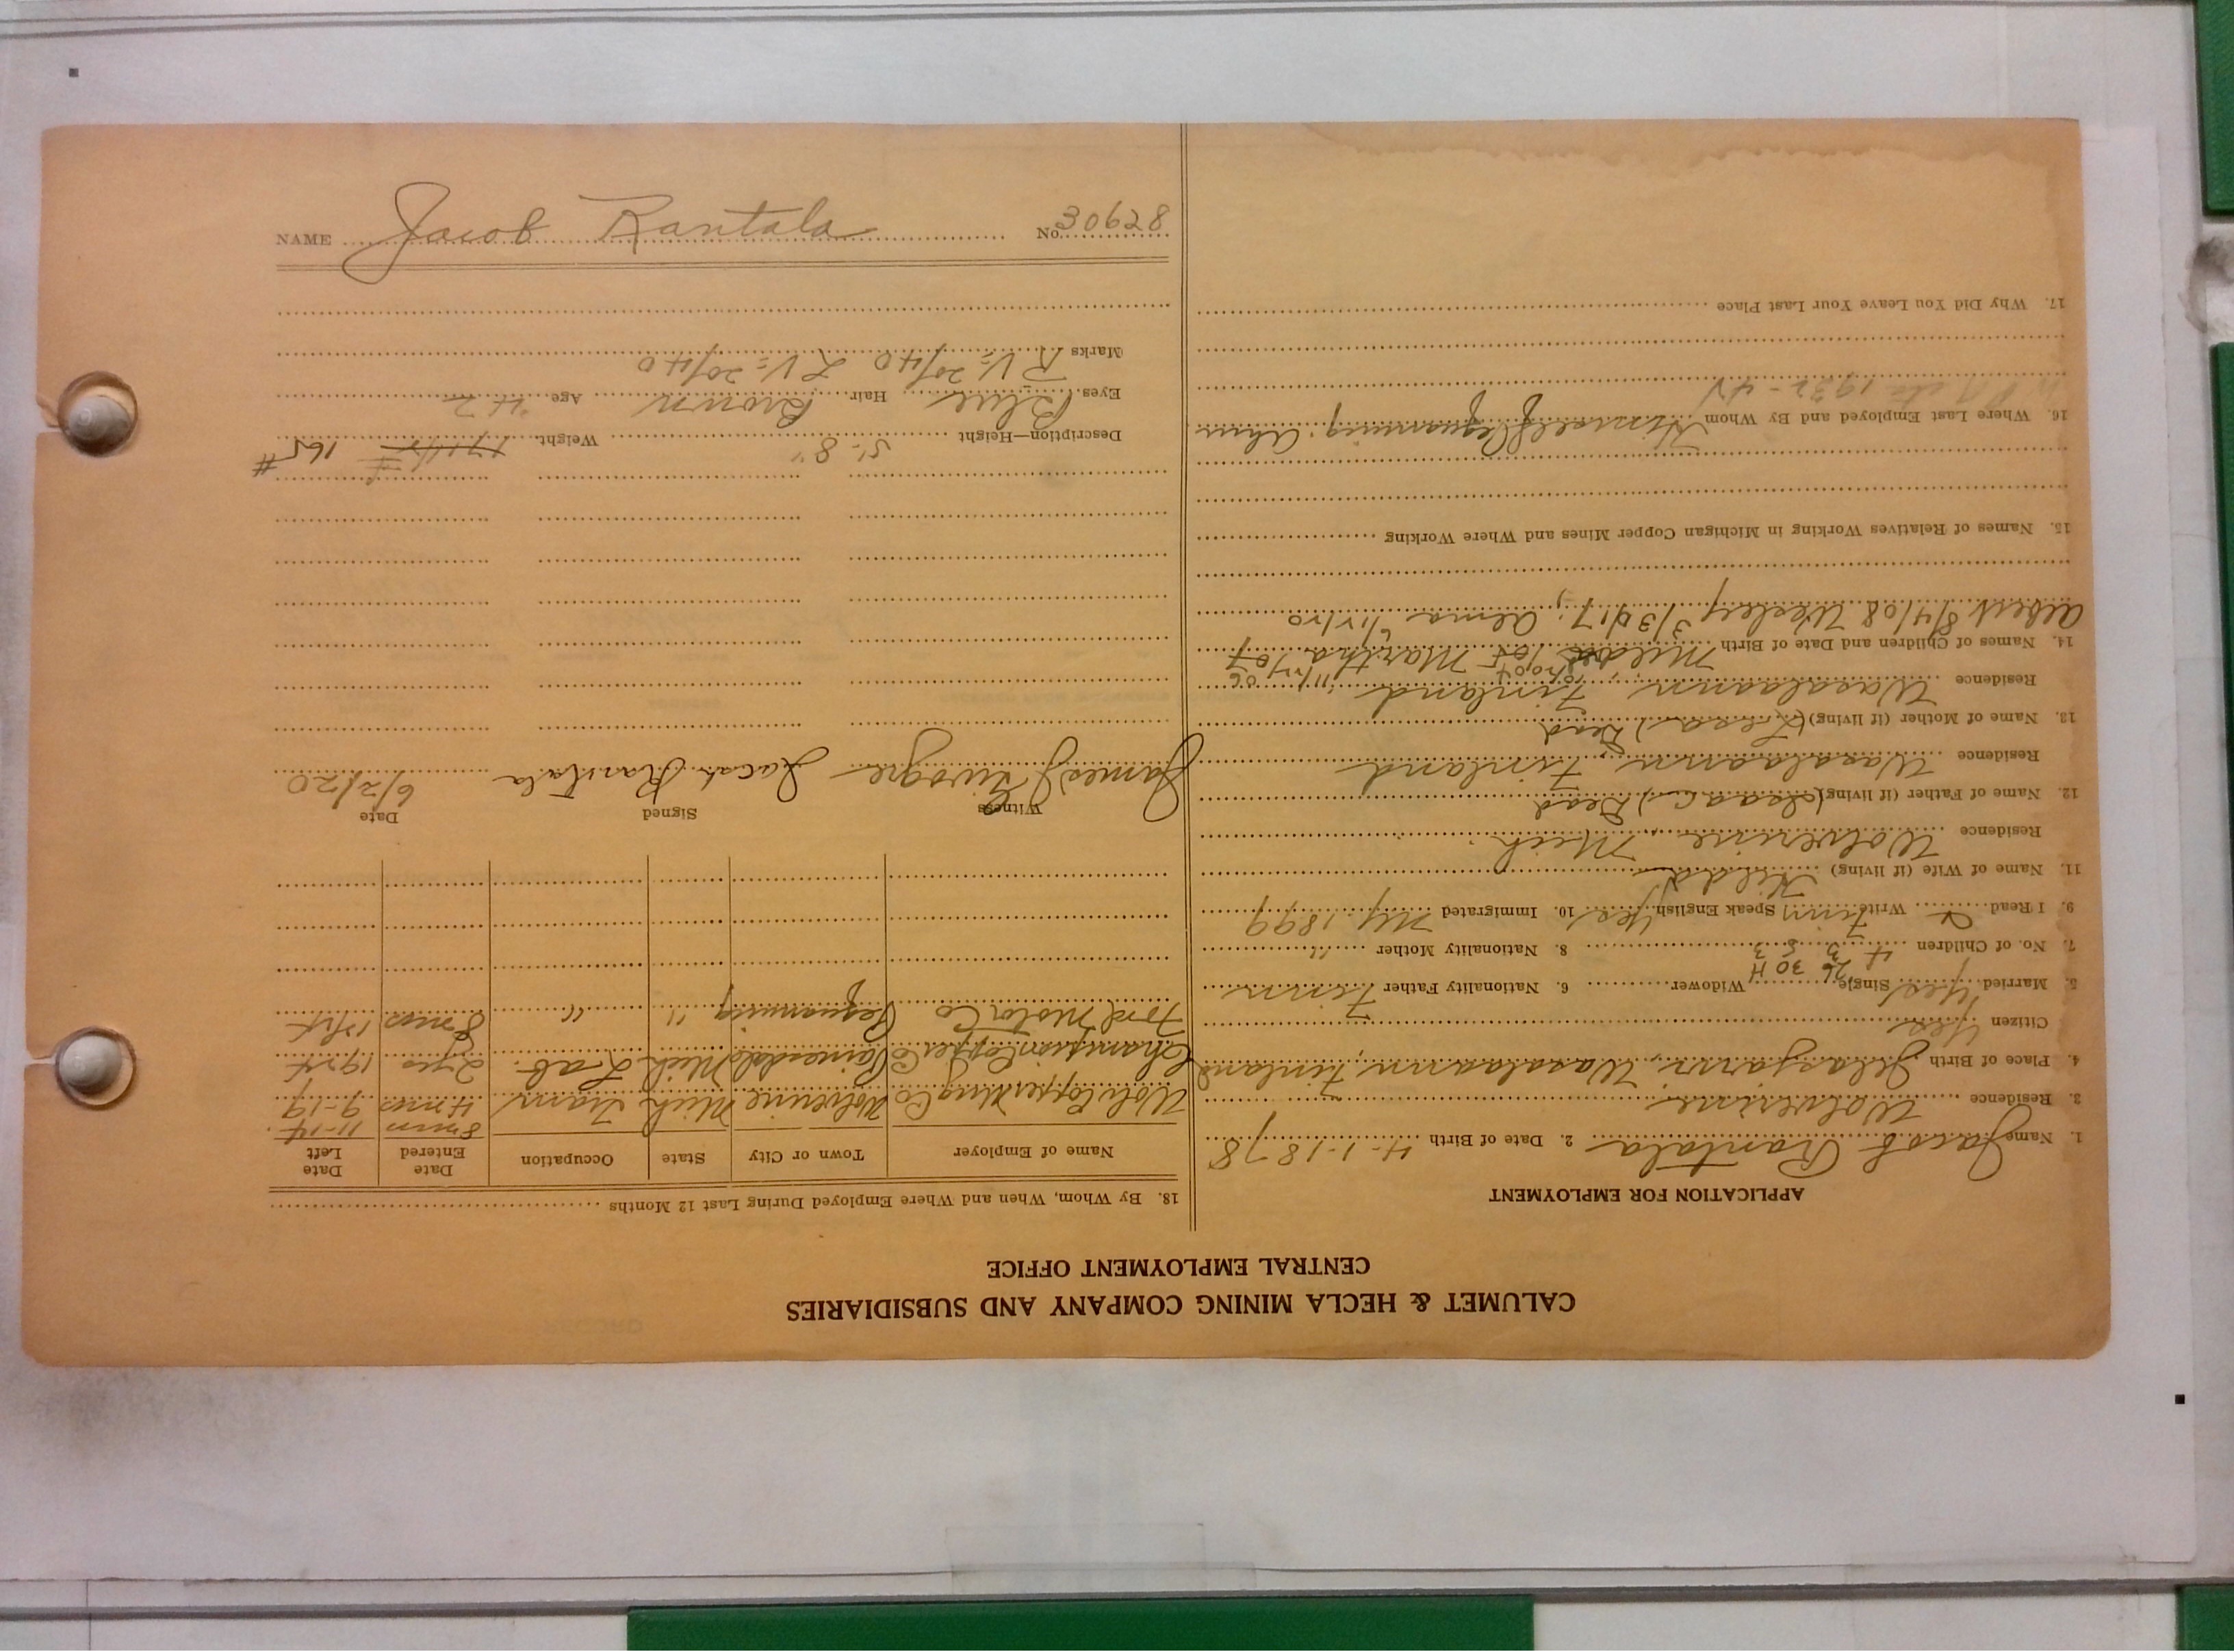 CALUMET & HECLA MINING COMPANY AND SUBSIDIARIES
CENTRAL EMPLOYMENT OFFICE
APPLICATION FOR EMPLOYMENT
1. Name Jacob Rantala 2. Date of Birth 4-1-1878
3. Residence Wolverine
4. Place of Birth Wasalaann, Finland
Citizen Yes
5. Married Yes Single Widower 6. Nationality Father Finn
26 30 H
7. No. of Children 4 3 5 3 8. Nationality Mother "
9. I Read Write Finn Speak English Yes 10. Immigrated 1899
11. Name of Wife (if living) Hilda
Residence Wolverine Mich.
12. Name of Father (if living) (Isaac) Dead
Residence Wasalaann Finland
13. Name of Mother (if living) Dead
Residence Wasalaann, Finland
14. Names of Children and Date of Birth Martha
Albert 8/4/08 Wesley 3/30/17; Alma
15. Names of Relatives Working in Michigan Copper Mines and Where Working
16. Where Last Employed and By Whom Himself Pequaming
17. Why Did You Leave Your Last Place
18. By Whom, When and Where Employed During Last 12 Months
Name of Employer Town or City State Occupation Date Entered Date Left
8 mos 11-14
Wolv Copper Mng Co Wolverine Mich Tram 4 mos 9-19
Champion Copper Co Painesdale Mich Lab. 2 yrs
Ford Motor Co Pequaming " " 8 mos
Witness Signed Date
James J Jacob Rantala 6/2/20
Description—Height 5'-8" Weight 165 #
Eyes Blue Hair Brown Age 42
Marks R V= 20/40 L V= 20/40
NAME Jacob Rantala No. 30628